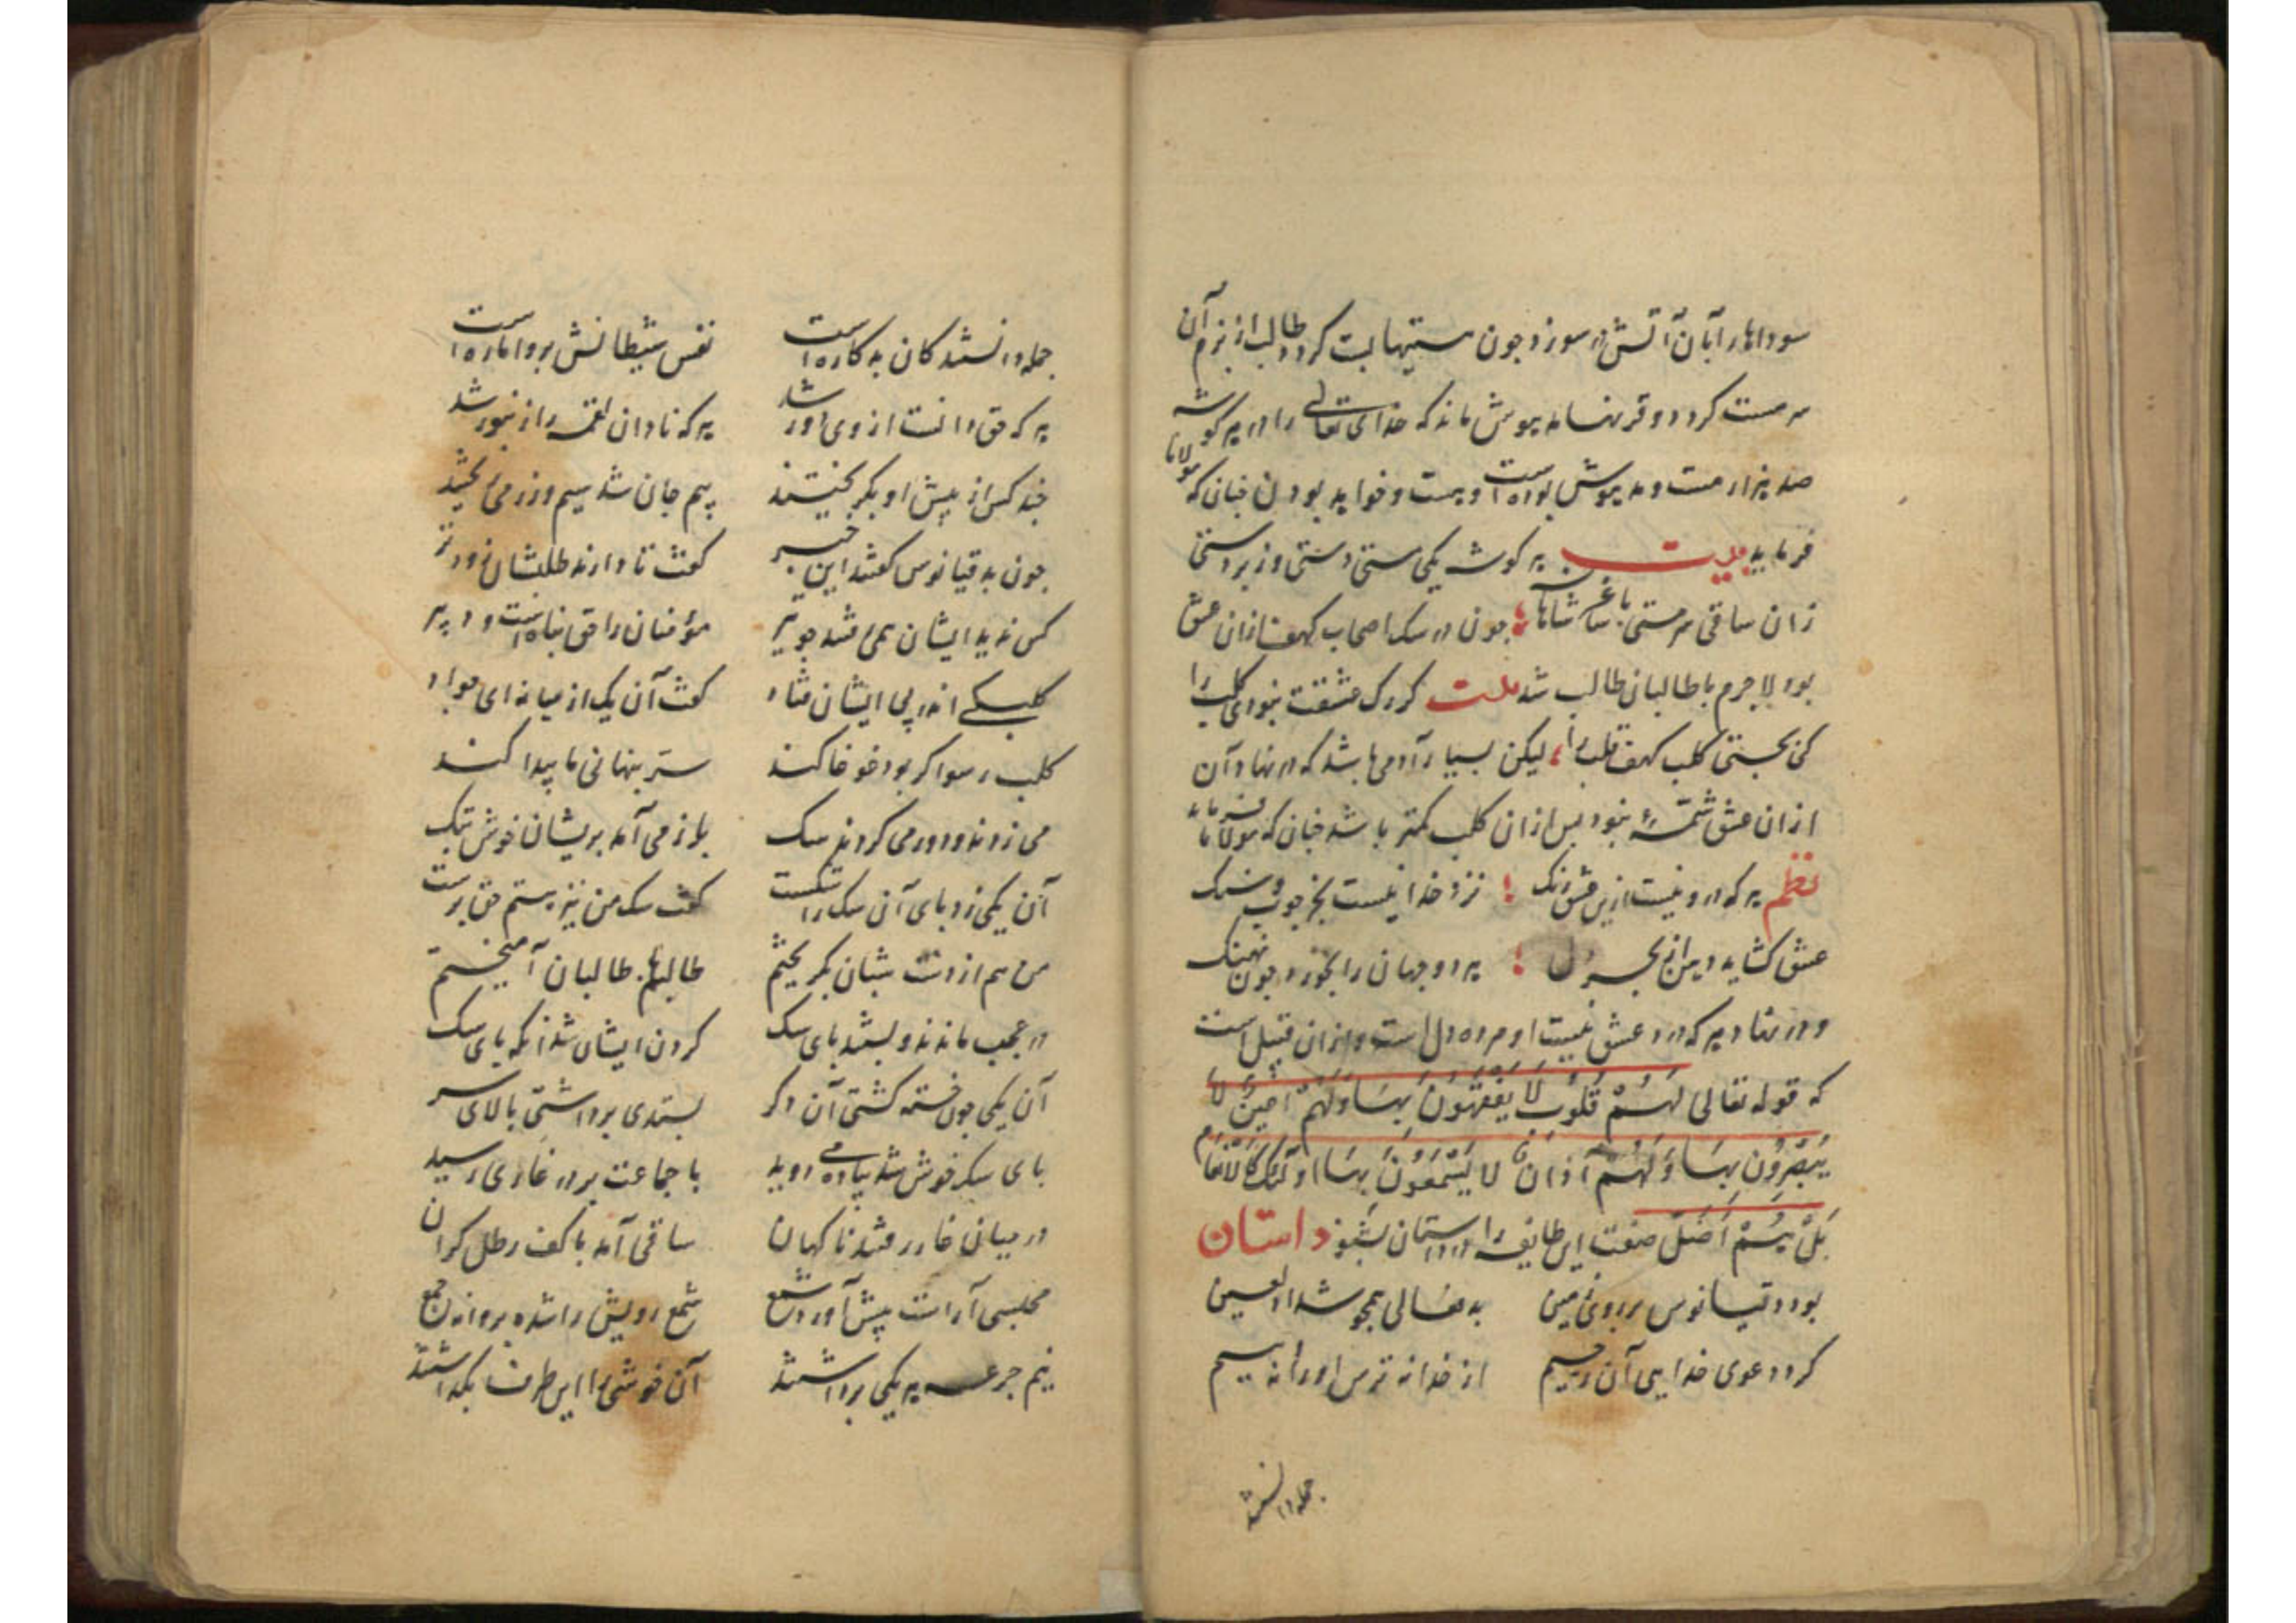 سوداها را آبان آتش در سوزد جون مستیها لبت کردد طالب از بزم آن
سرمست کردد و قرنها مدهوش ماند که خدای تعالی را در هر کوشه
صد هزار مست و مدهوش بوده است و هست و خواهد بودن جنان که مولانا
فرماید بیت هر کوشه یکی مستی دستی و زبر دستی
زان ساقی سرمستی با ساغر شاهانه جون در سک اصحاب کهف ازان عشق
بود لاجرم با طالبان طالب شد بیت کر رک عشقت نبودی کلب را
کی بجستی کلب کهف قلب را لیکن بسیار آدمی باشد که در نهاد آن
ازان عشق شمهٔ نبود بس ازان کلب کمتر باشد جنان که مولانا فرماید
نظم هر که درو نیست ازین عشق رنک نزد خدا نیست بجز جوب و سنک
عشق کشاید دهن از بحر دل هر دو جهان را بخورد جون نهنک
و در نهاد هر که درد عشق نیست او مرده دل است و ازان قبیل است
که قوله تعالی لَهُمْ قُلُوبٌ لَا يَفْقَهُونَ بِهَا وَلَهُمْ أَعْيُنٌ لَا
يُبْصِرُونَ بِهَا وَلَهُمْ آذَانٌ لَا يَسْمَعُونَ بِهَا اولَئِكَ كَالْأَنْعَامِ
بَلْ هُمْ أَضَلُّ صفت این طایفه را در داستان بشنو داستان
بود دقیانوس بر روی زمین بد فعالی همجو شداد لعین
کرد دعوی خدایی آن رجیم از خدا نه ترس او را نه بیم
جمله دانستند
جمله دانستند کان بدکاره است نفس شیطانش برو اماره است
هر که حق دانست از وی دور شد هر که نادان لقمه را زنبور شد
جند کس از بیش او بکریختند بهم جان شد سیم و زر می بیختند
جون بدقیانوس کفتند این خبر کفت تا دارند طلبشان زودتر
کس ندید ایشان همی رفتند جو تیر مؤمنان را حق بناهست و دهیر
کلبکی اندر پی ایشان فتاد کفت آن یک از میانه ای جواد
کلب رسوا کر بود غوغا کند سر بنهانی ما پیدا کند
می زدند و دور می کردند سک باز می آمد بریشان خوش بتک
آن یکی زد بای آن سک را شکست کفت سک من نیز هستم حق برست
من هم از دست بشان بکریختم طالبم با طالبان آمیختم
در عجب ماندند و بستند بای سک کردن ایشان شد آنکه بای سک
آن یکی جون خسته کشتی آن دکر بستدی برداشتی بالای سر
بای سک خوش شد بیاده می دوید با جماعت بر در غاری رسید
در میان غار رفتند ناکهان ساقی آمد با کف رطل کران
مجلسی آراست پیش آورد شمع شمع رویش را شده بروانه جمع
نیم جرعه هر یکی برداشتند آن خوشی را این طرف بکداشتند